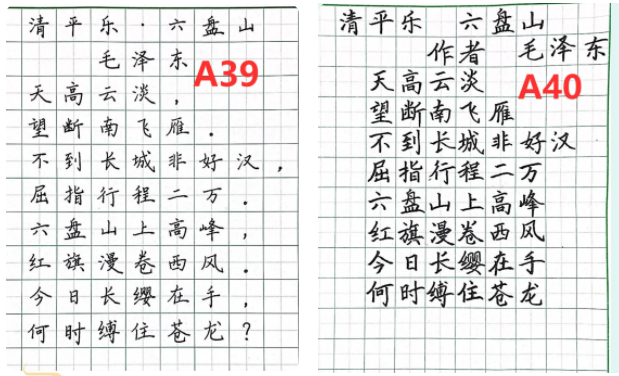 清平乐·六盘山
毛泽东
A39
天高云淡，
望断南飞雁．
不到长城非好汉，
屈指行程二万．
六盘山上高峰，
红旗漫卷西风．
今日长缨在手，
何时缚住苍龙？
清平乐 六盘山
作者 毛泽东
天高云淡
A40
望断南飞雁
不到长城非好汉
屈指行程二万
六盘山上高峰
红旗漫卷西风
今日长缨在手
何时缚住苍龙